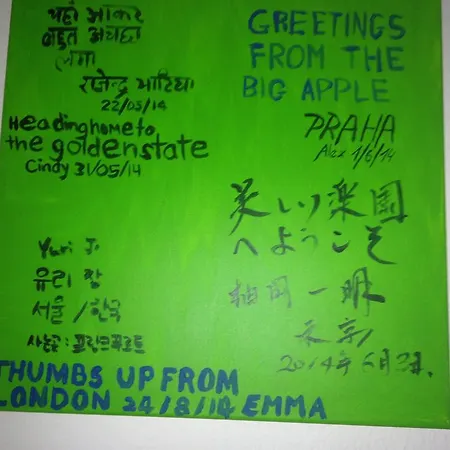 यहाँ आकर
बहुत अच्छा
लगा
राजेन्द्र भाटिया
22/05/14
Heading home to
the golden state
Cindy 31/05/14
GREETINGS
FROM THE
BIG APPLE
PRAHA
Alex 1/6/14
美しい楽園
へようこそ
柏岡一明
東京/
2014年6月3日.
Yuri J.
유리 장
서울/한국
사는곳: 프랑크푸르트
THUMBS UP FROM
LONDON 24/8/14 EMMA